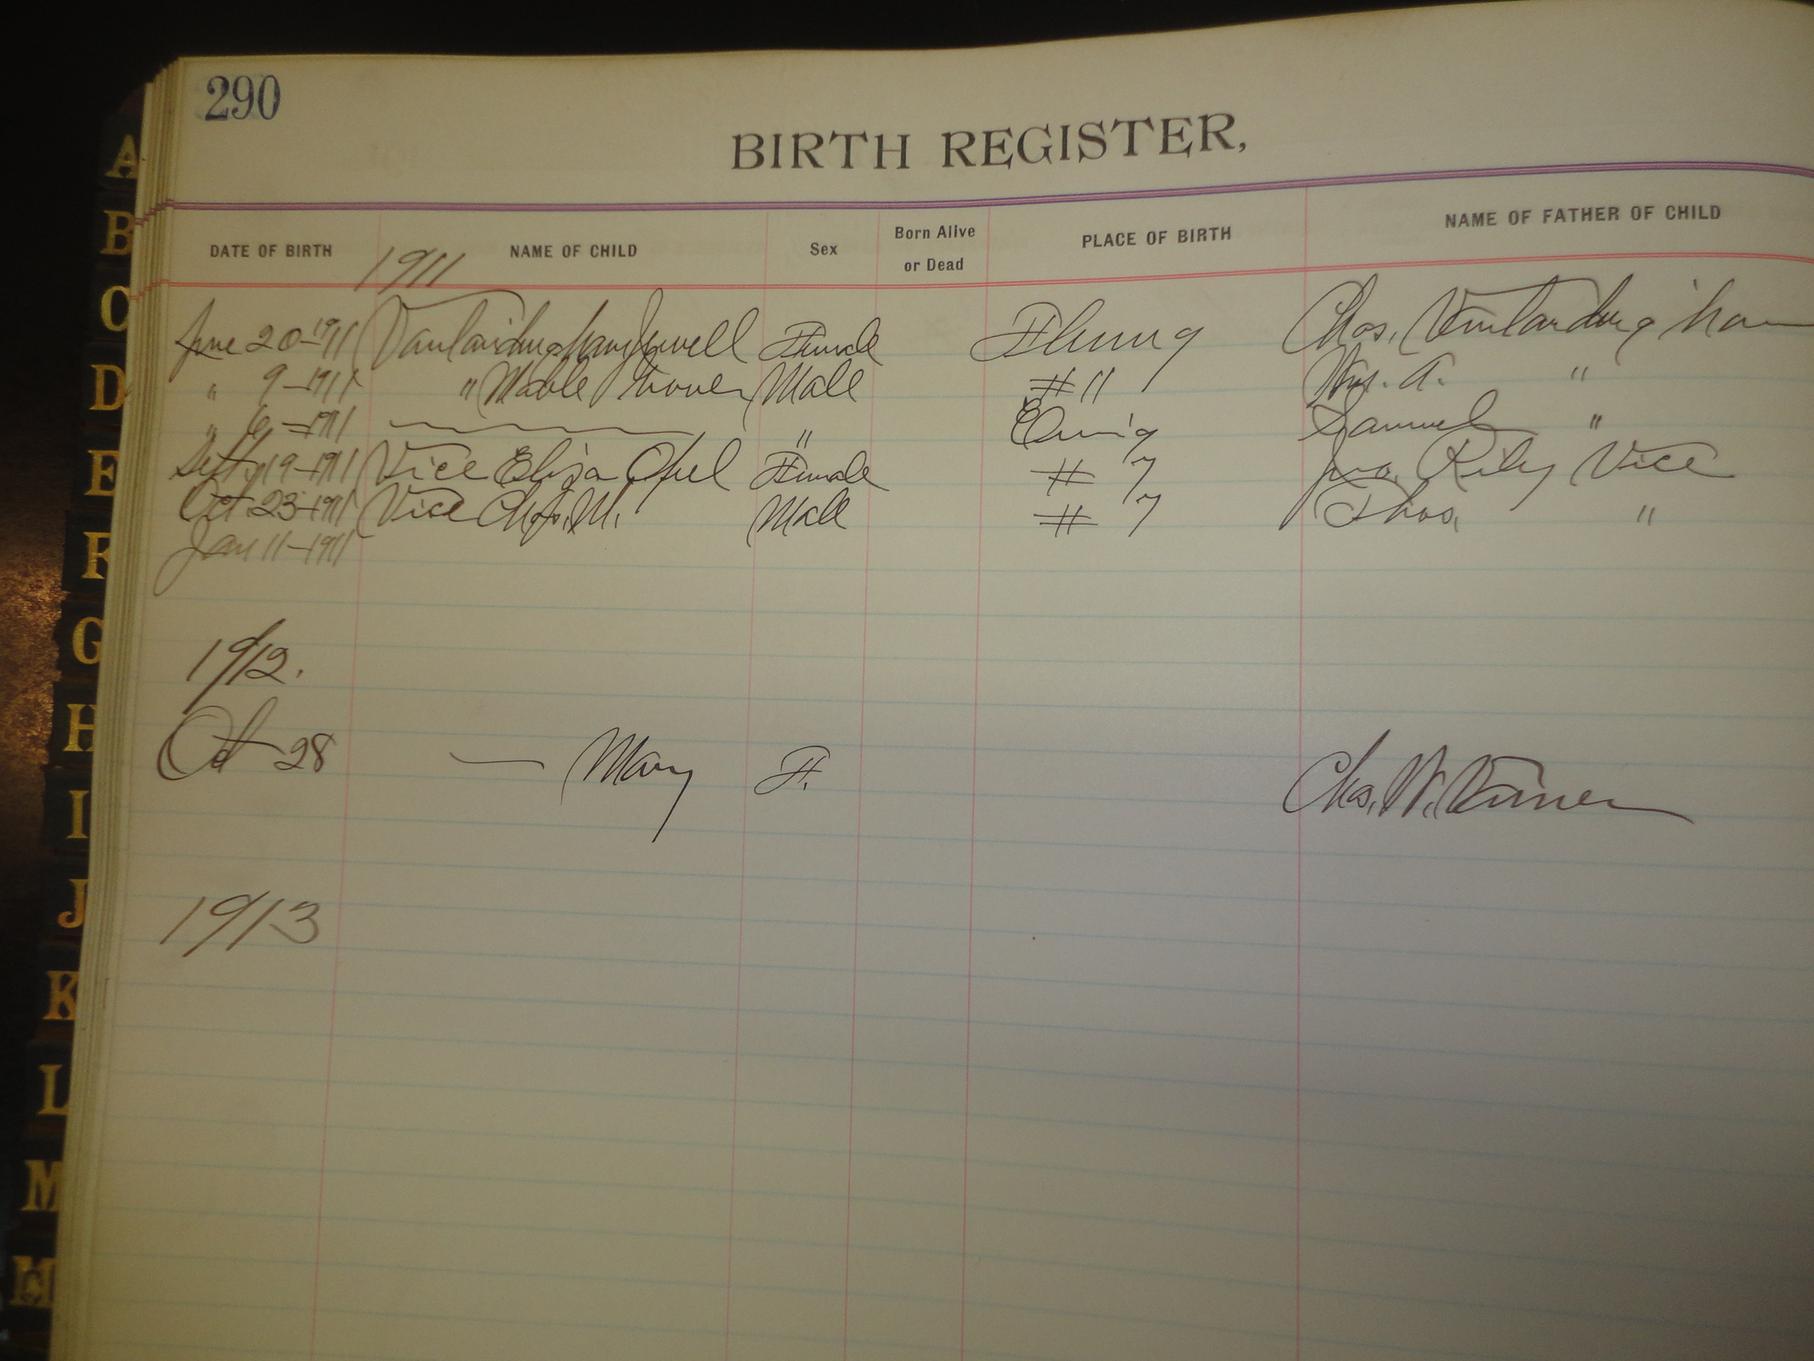 290
BIRTH REGISTER,
DATE OF BIRTH NAME OF CHILD Sex Born Alive or Dead PLACE OF BIRTH NAME OF FATHER OF CHILD
1911
June 20-1911 Vanlandingham Jewell Female Fleming Chas. Vanlandingham
" 9-1911 " Mable Male #11 Wm. A. "
" 6-1911 " Ewing Samuel "
Sept 19-1911 Vice Eliza Opel Female # 7 Jno. Riley Vice
Oct. 23-1911 Vice Chas. M. Male # 7 Thos. "
Jan 11-1911
1912.
Oct 28 — Mary F. Chas. W.
1913
A
B
C
D
E
F
G
H
I
J
K
L
M